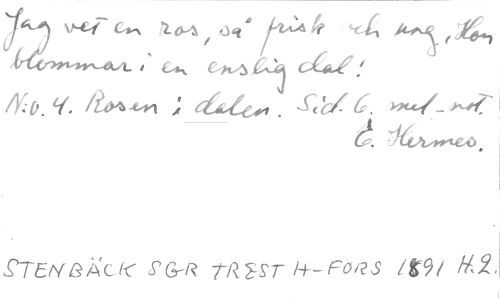 Jag vet en ros, så frisk och ung, Hon
blommar i en enslig dal!
N:o. 4. Rosen i dalen. Sid. 6. mel-not.
E. Hermes.
STENBÄCK SGR TREST H-FORS 1891 H.2.